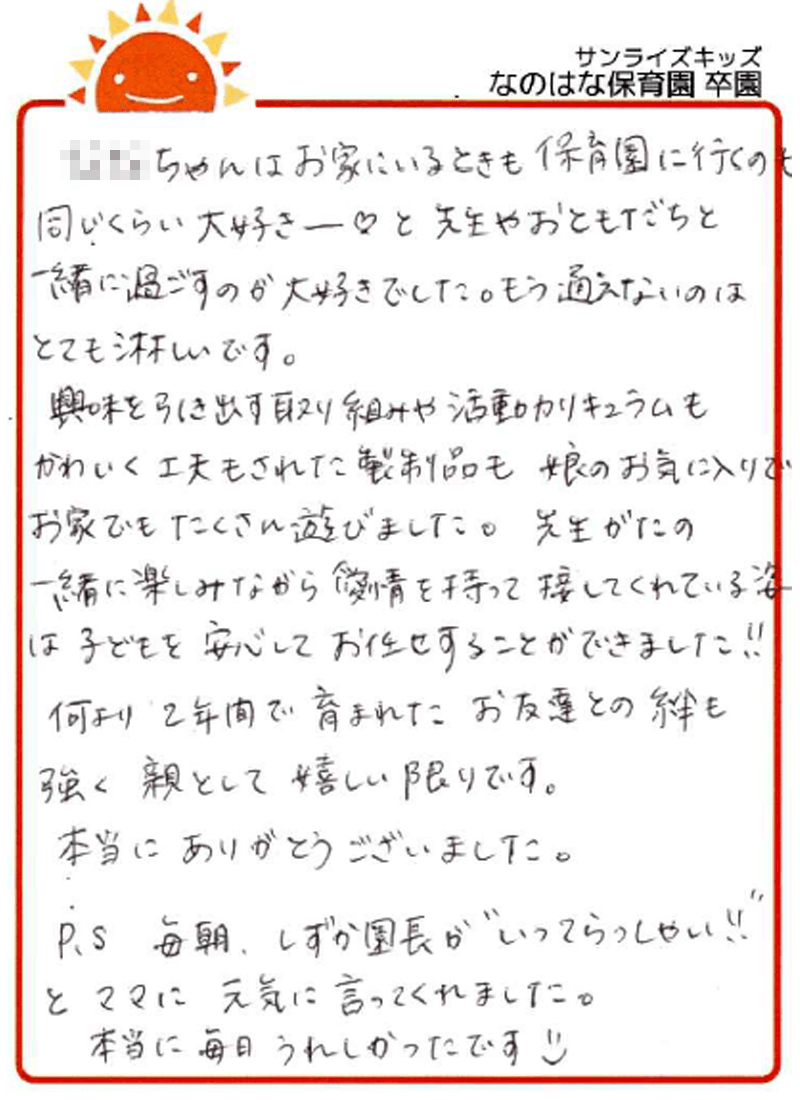 サンライズキッズ
なのはな保育園 卒園
ちゃんはお家にいるときも 保育園に行くのも
同じくらい 大好きー♡と 先生やおともだちと
一緒に過ごすのが 大好きでした。もう通えないのは
とても淋しいです。
興味を引き出す取り組みや 活動カリキュラムも
かわいく 工夫もされた製制品も 娘のお気に入りで
お家でも たくさん遊びました。 先生がたの
一緒に楽しみながら 愛情を持って 接してくれている姿
は 子どもを 安心して お任せすることができました!!
何より 2年間で 育まれた お友達との 絆も
強く 親として 嬉しい限りです。
本当に ありがとうございました。
P.S 毎朝、しずか園長が "いってらっしゃい!!"
と ママに 元気に 言ってくれました。
本当に 毎日 うれしかったです